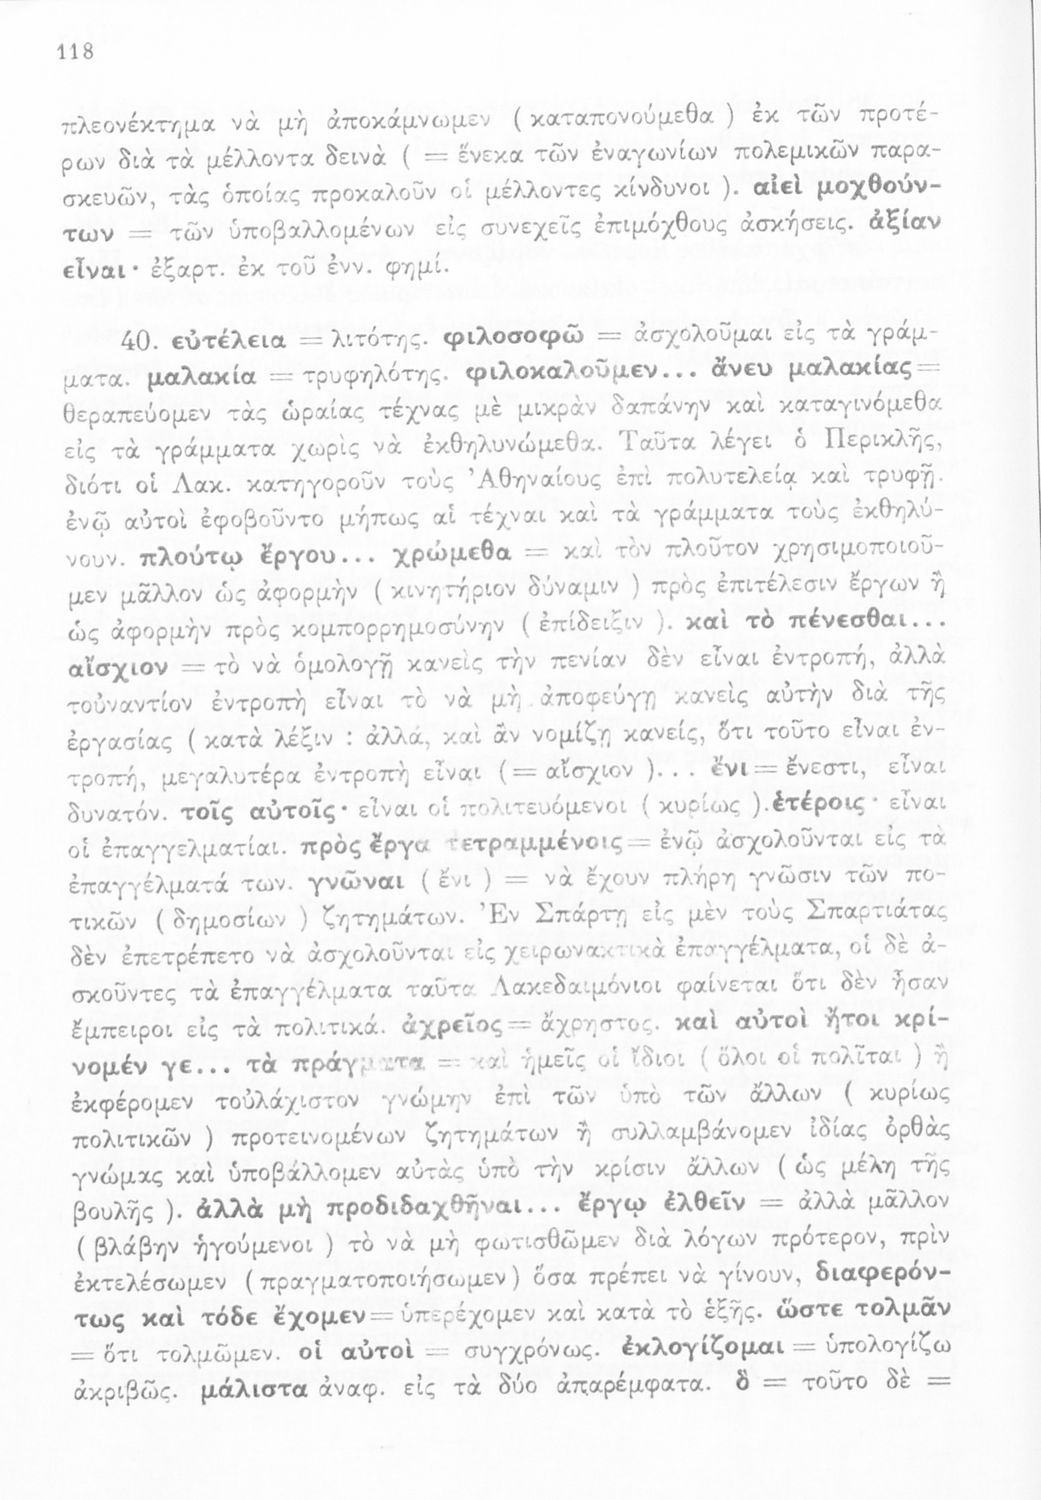 118
πλεονέκτημα νὰ μὴ ἀποκάμνωμεν ( καταπονούμεθα ) ἐκ τῶν προτέ-
ρων διὰ τὰ μέλλοντα δεινὰ ( = ἕνεκα τῶν ἐναγωνίων πολεμικῶν παρα-
σκευῶν, τὰς ὁποίας προκαλοῦν οἱ μέλλοντες κίνδυνοι ). αἰεὶ μοχθούν-
των = τῶν ὑποβαλλομένων εἰς συνεχεῖς ἐπιμόχθους ἀσκήσεις. ἀξίαν
εἶναι · ἐξαρτ. ἐκ τοῦ ἐνν. φημί.
40. εὐτέλεια = λιτότης. φιλοσοφῶ = ἀσχολοῦμαι εἰς τὰ γράμ-
ματα. μαλακία = τρυφηλότης. φιλοκαλοῦμεν... ἄνευ μαλακίας =
θεραπεύομεν τὰς ὡραίας τέχνας μὲ μικρὰν δαπάνην καὶ καταγινόμεθα
εἰς τὰ γράμματα χωρὶς νὰ ἐκθηλυνώμεθα. Ταῦτα λέγει ὁ Περικλῆς,
διότι οἱ Λακ. κατηγοροῦν τοὺς Ἀθηναίους ἐπὶ πολυτελείᾳ καὶ τρυφῇ.
ἐνῷ αὐτοὶ ἐφοβοῦντο μήπως αἱ τέχναι καὶ τὰ γράμματα τοὺς ἐκθηλύ-
νουν. πλούτῳ ἔργου... χρώμεθα = καὶ τὸν πλοῦτον χρησιμοποιοῦ-
μεν μᾶλλον ὡς ἀφορμὴν ( κινητήριον δύναμιν ) πρὸς ἐπιτέλεσιν ἔργων ἢ
ὡς ἀφορμὴν πρὸς κομπορρημοσύνην ( ἐπίδειξιν ). καὶ τὸ πένεσθαι...
αἴσχιον = τὸ νὰ ὁμολογῇ κανεὶς τὴν πενίαν δὲν εἶναι ἐντροπή, ἀλλὰ
τοὐναντίον ἐντροπὴ εἶναι τὸ νὰ μὴ ἀποφεύγῃ κανεὶς αὐτὴν διὰ τῆς
ἐργασίας ( κατὰ λέξιν : ἀλλά, καὶ ἂν νομίζῃ κανείς, ὅτι τοῦτο εἶναι ἐν-
τροπή, μεγαλυτέρα ἐντροπὴ εἶναι ( = αἴσχιον )... ἔνι = ἔνεστι, εἶναι
δυνατόν. τοῖς αὐτοῖς · εἶναι οἱ πολιτευόμενοι ( κυρίως ). ἑτέροις · εἶναι
οἱ ἐπαγγελματίαι. πρὸς ἔργα τετραμμένοις = ἐνῷ ἀσχολοῦνται εἰς τὰ
ἐπαγγέλματά των. γνῶναι ( ἔνι ) = νὰ ἔχουν πλήρη γνῶσιν τῶν πο-
τικῶν ( δημοσίων ) ζητημάτων. Ἐν Σπάρτῃ εἰς μὲν τοὺς Σπαρτιάτας
δὲν ἐπετρέπετο νὰ ἀσχολοῦνται εἰς χειρωνακτικὰ ἐπαγγέλματα, οἱ δὲ ἀ-
σκοῦντες τὰ ἐπαγγέλματα ταῦτα Λακεδαιμόνιοι φαίνεται ὅτι δὲν ἦσαν
ἔμπειροι εἰς τὰ πολιτικά. ἀχρεῖος = ἄχρηστος. καὶ αὐτοὶ ἤτοι κρί-
νομέν γε... τὰ πράγματα = καὶ ἡμεῖς οἱ ἴδιοι ( ὅλοι οἱ πολῖται ) ἢ
ἐκφέρομεν τοὐλάχιστον γνώμην ἐπὶ τῶν ὑπὸ τῶν ἄλλων ( κυρίως
πολιτικῶν ) προτεινομένων ζητημάτων ἢ συλλαμβάνομεν ἰδίας ὀρθὰς
γνώμας καὶ ὑποβάλλομεν αὐτὰς ὑπὸ τὴν κρίσιν ἄλλων ( ὡς μέλη τῆς
βουλῆς ). ἀλλὰ μὴ προδιδαχθῆναι... ἔργῳ ἐλθεῖν = ἀλλὰ μᾶλλον
( βλάβην ἡγούμενοι ) τὸ νὰ μὴ φωτισθῶμεν διὰ λόγων πρότερον, πρὶν
ἐκτελέσωμεν ( πραγματοποιήσωμεν ) ὅσα πρέπει νὰ γίνουν, διαφερόν-
τως καὶ τόδε ἔχομεν = ὑπερέχομεν καὶ κατὰ τὸ ἑξῆς. ὥστε τολμᾶν
= ὅτι τολμῶμεν. οἱ αὐτοὶ = συγχρόνως. ἐκλογίζομαι = ὑπολογίζω
ἀκριβῶς. μάλιστα ἀναφ. εἰς τὰ δύο ἀπαρέμφατα. ὃ = τοῦτο δὲ =